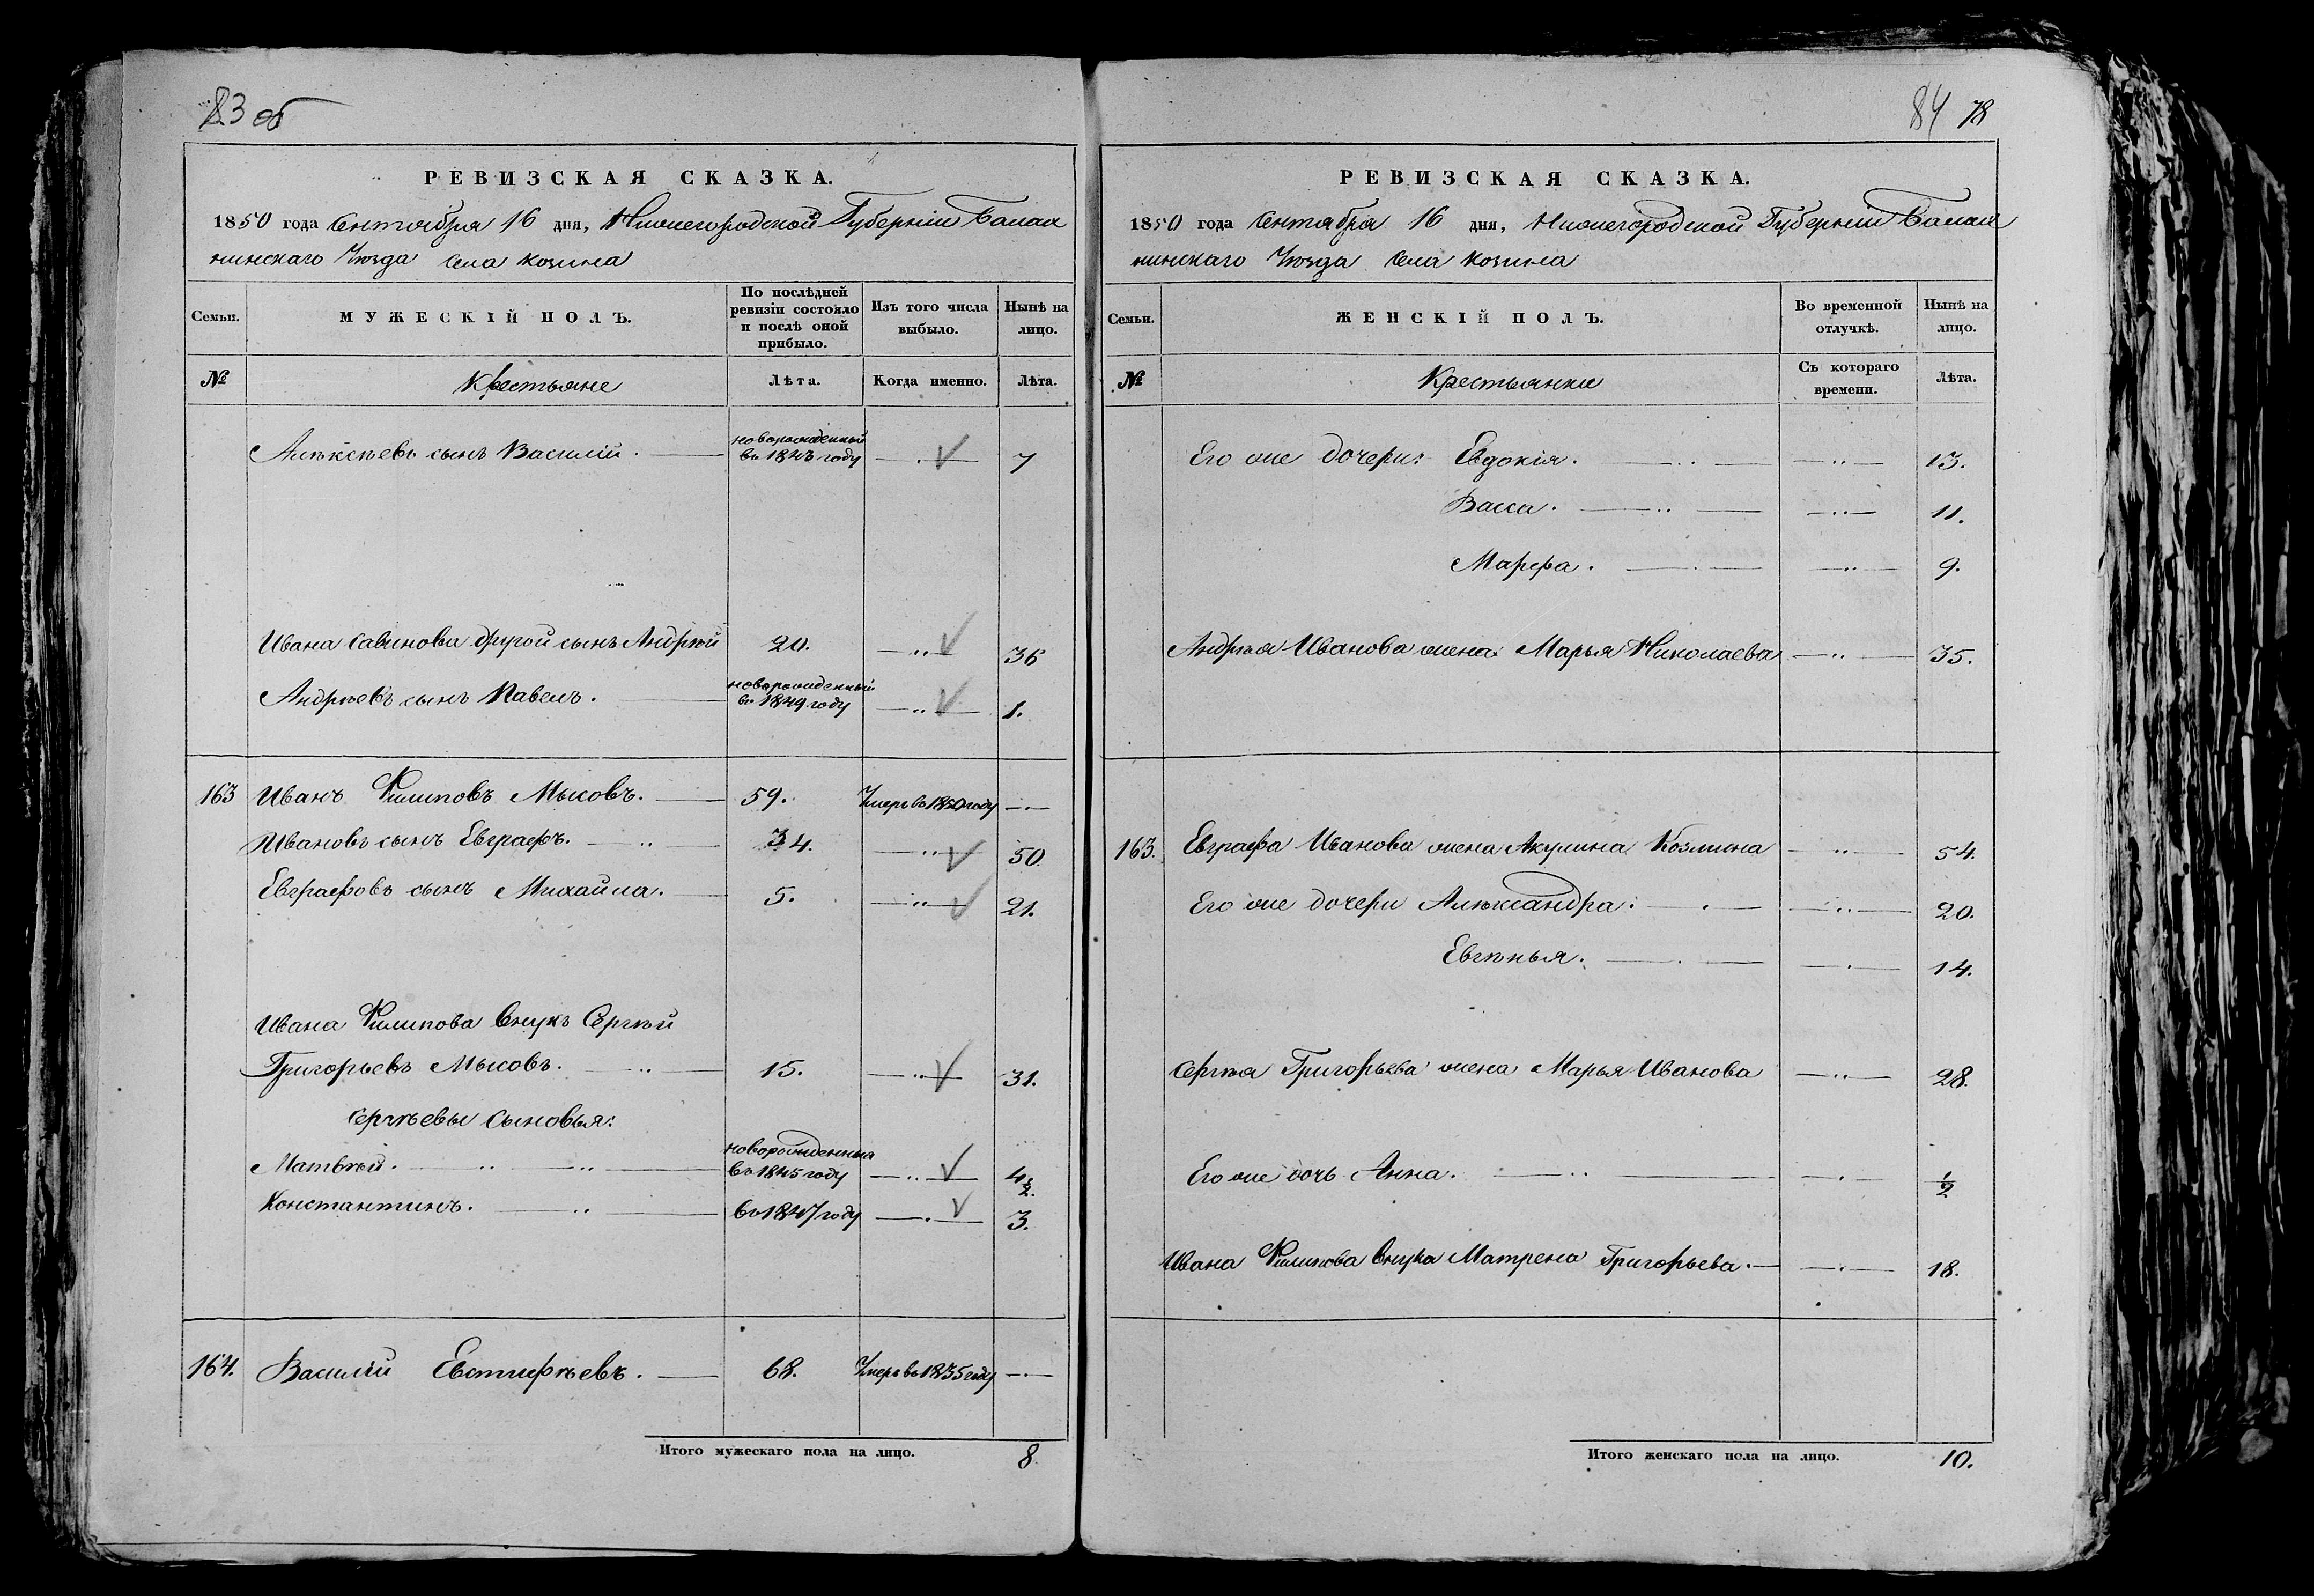 83 об
РЕВИЗСКАЯ СКАЗКА.
1850 года Сентября 16 дня, Нижегородской Губерніи Балах
нинскаго Уѣзда Села Козина
Семьи.
МУЖЕСКІЙ ПОЛЪ.
По послѣдней
ревизіи состояло
и послѣ оной
прибыло.
Изъ того числа
выбыло.
Нынѣ на
лицо.
№
Крестьяне
Лѣта.
Когда именно.
Лѣта.
Алѣксѣевъ сынъ Василій. новорожденный
въ 1843 году 7
Ивана Савинова другой сынъ Андрѣй 20. 36
Андрѣевъ сынъ Павелъ. новорожденный
въ 1849 году 1.
163 Иванъ Филиповъ Мысовъ. 59. Умеръ въ 1850 году
Ивановъ сынъ Евграфъ. 34. 50.
Евграфовъ сынъ Михайла. 5. 21.
Ивана Филипова внукъ Сергѣй
Григорьевъ Мысовъ. 15. 31.
Сергѣевы Сыновья:
Матвѣй. новорожденныя
въ 1845 году 4½.
Константинъ. въ 1847 году 3.
164. Василій Евстифѣевъ. 68. Умеръ въ 1835 году
Итого мужескаго пола на лицо. 8
84 78
РЕВИЗСКАЯ СКАЗКА.
1850 года Сентября 16 дня, Нижегородской Губерніи Балах
нинскаго Уѣзда Села Козина
Семьи.
ЖЕНСКІЙ ПОЛЪ.
Во временной
отлучкѣ.
Нынѣ на
лицо.
№
Крестьянки
Съ котораго
времени.
Лѣта.
Его же дочери: Евдокія. 13.
Васса. 11.
Марфа. 9.
Андрѣя Иванова жена Марья Николаева 35.
163. Евграфа Иванова жена Акулина Козмина 54.
Его же дочери Алѣксандра. 20.
Евгѣнья. 14.
Сергѣя Григорьева жена Марья Иванова 28.
Его же дочь Анна. ½
Ивана Филипова внука Матрена Григорьева. 18.
Итого женскаго пола на лицо. 10.